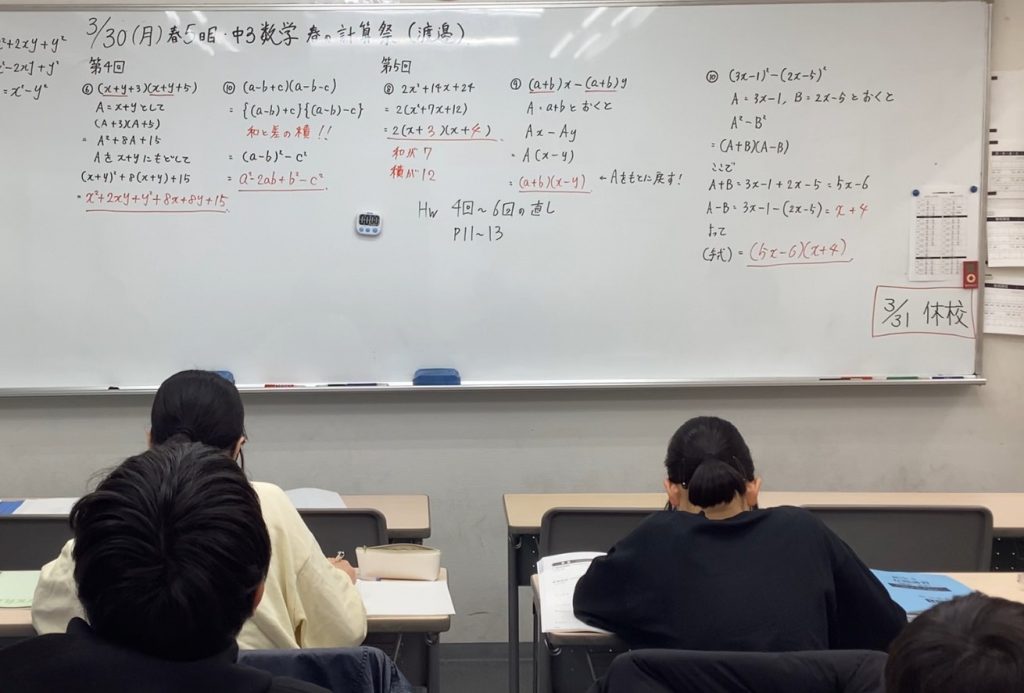 3/30(月)春5日目・中3数学 春の計算祭(渡邉)
x²+2xy+y²
x²-2xy+y²
=x²-y²
第4回
⑥ (x+y+3)(x+y+5)
A=x+yとして
(A+3)(A+5)
= A²+8A+15
Aをx+yにもどして
(x+y)²+8(x+y)+15
= x²+2xy+y²+8x+8y+15
⑩ (a-b+c)(a-b-c)
= {(a-b)+c}{(a-b)-c}
和と差の積!!
= (a-b)²-c²
= a²-2ab+b²-c²
第5回
⑧ 2x²+14x+24
= 2(x²+7x+12)
= 2(x+3)(x+4)
和が7
積が12
⑨ (a+b)x-(a+b)y
A=a+bとおくと
Ax-Ay
= A(x-y)
= (a+b)(x-y) ←Aをもとに戻す!
Hw 4回~6回の直し
P11~13
⑩ (3x-1)²-(2x-5)²
A=3x-1, B=2x-5とおくと
A²-B²
= (A+B)(A-B)
ここで
A+B=3x-1+2x-5=5x-6
A-B=3x-1-(2x-5)=x+4
よって
(与式)=(5x-6)(x+4)
3/31 休校